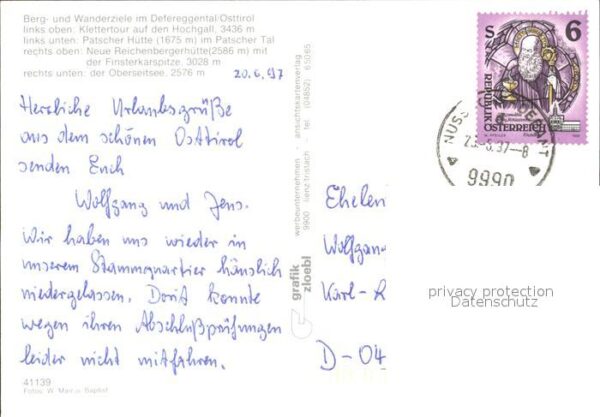 Berg- und Wanderziele im Defereggental/Osttirol
links oben: Klettertour auf den Hochgall, 3436 m
links unten: Patscher Hütte (1675 m) im Patscher Tal
rechts oben: Neue Reichenbergerhütte(2586 m) mit
der Finsterkarspitze, 3028 m
rechts unten: der Oberseitsee, 2576 m
20.6.97
Herzliche Urlaubsgrüße
aus dem schönen Osttirol
senden Euch
Wolfgang und Jens.
Wir haben uns wieder in
unserem Stammquartier häuslich
niedergelassen. Dorit konnte
wegen ihren Abschlußprüfungen
leider nicht mitfahren.
41139
Fotos: W. Mair u. Baptist
werbeunternehmen - ansichtskartenverlag
9900 lienz/tristach tel. (04852) 65065
grafik
zloebl
S 6
REPUBLIK
ÖSTERREICH
NUSS
9990
Ehelen
Wolfgang
Karl-R
D-04
privacy protection
Datenschutz